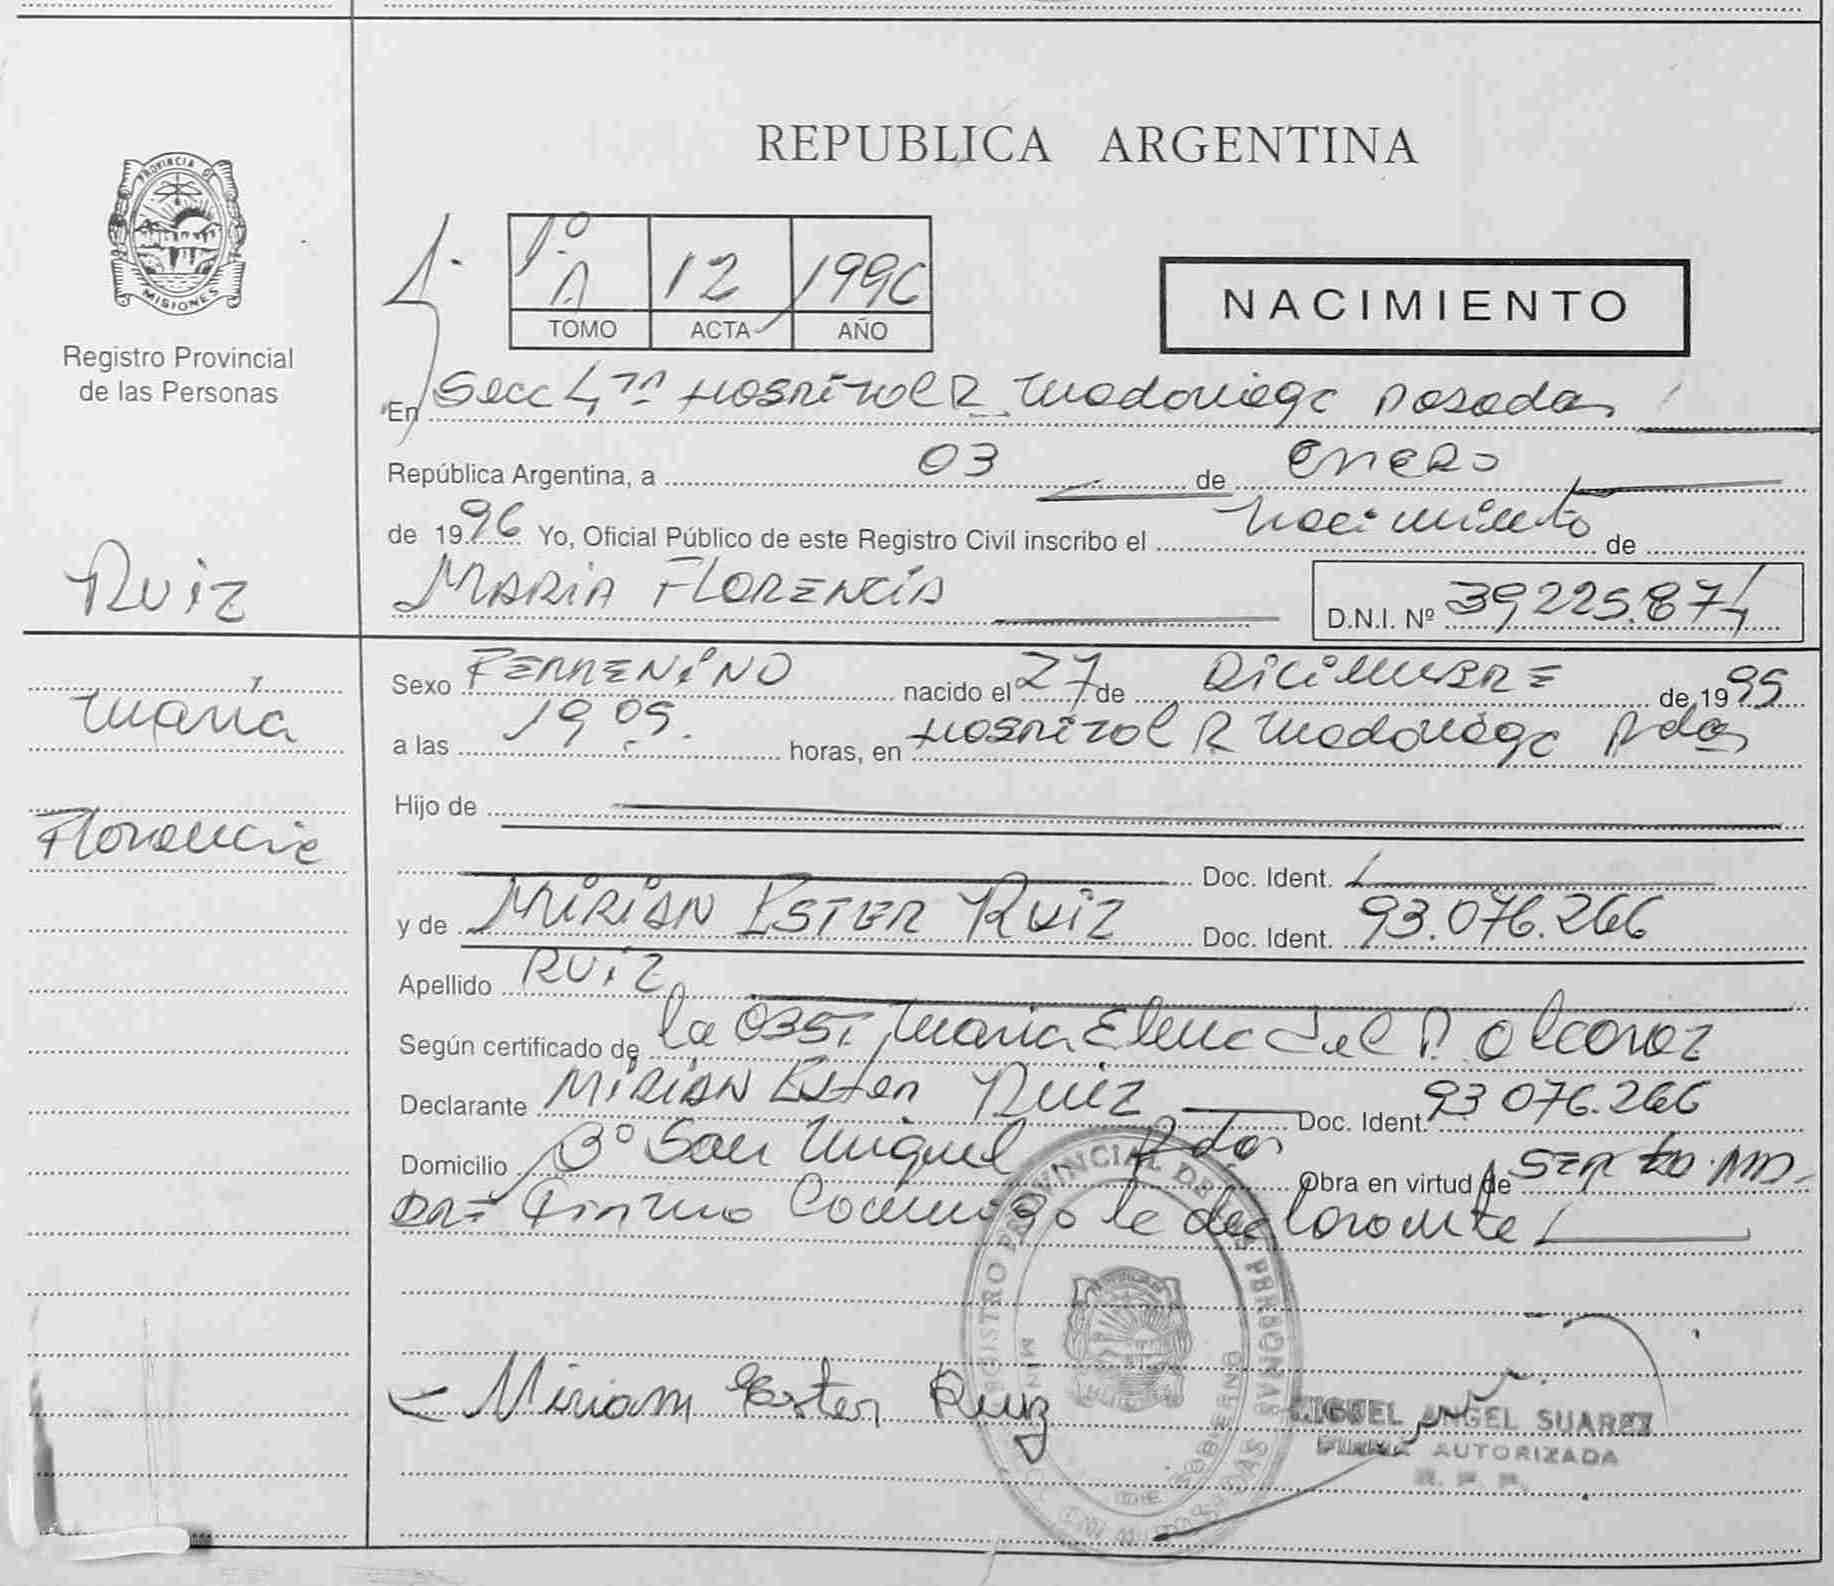 REPUBLICA ARGENTINA
PROVINCIA DE
MISIONES
Registro Provincial
de las Personas
1º A 12 1996
TOMO ACTA AÑO
NACIMIENTO
En Secc 4ta Hospital R Madariaga Posadas
República Argentina, a 03 de enero
de 1996 Yo, Oficial Público de este Registro Civil inscribo el Nacimiento de
MARIA FLORENCIA D.N.I. Nº 39.225.874
Ruiz
María
Florencia
Sexo FEMENINO nacido el 27 de DICIEMBRE de 1995
a las 19 05. horas, en Hospital R Madariaga Pdas
Hijo de
Doc. Ident.
y de MIRIAN ESTER RUIZ Doc. Ident. 93.076.266
Apellido RUIZ
Según certificado de la OBST, Maria Elena del P. Alcaraz
Declarante MIRIAN Ester Ruiz Doc. Ident. 93 076.266
Domicilio Bº San Miguel Pdas Obra en virtud de SER la MA-
DRE Firma Conmigo la declarante
REGISTRO PROVINCIAL DE LAS PERSONAS
Miriam Ester Ruiz
MIGUEL ANGEL SUAREZ
FIRMA AUTORIZADA
R. P. P.